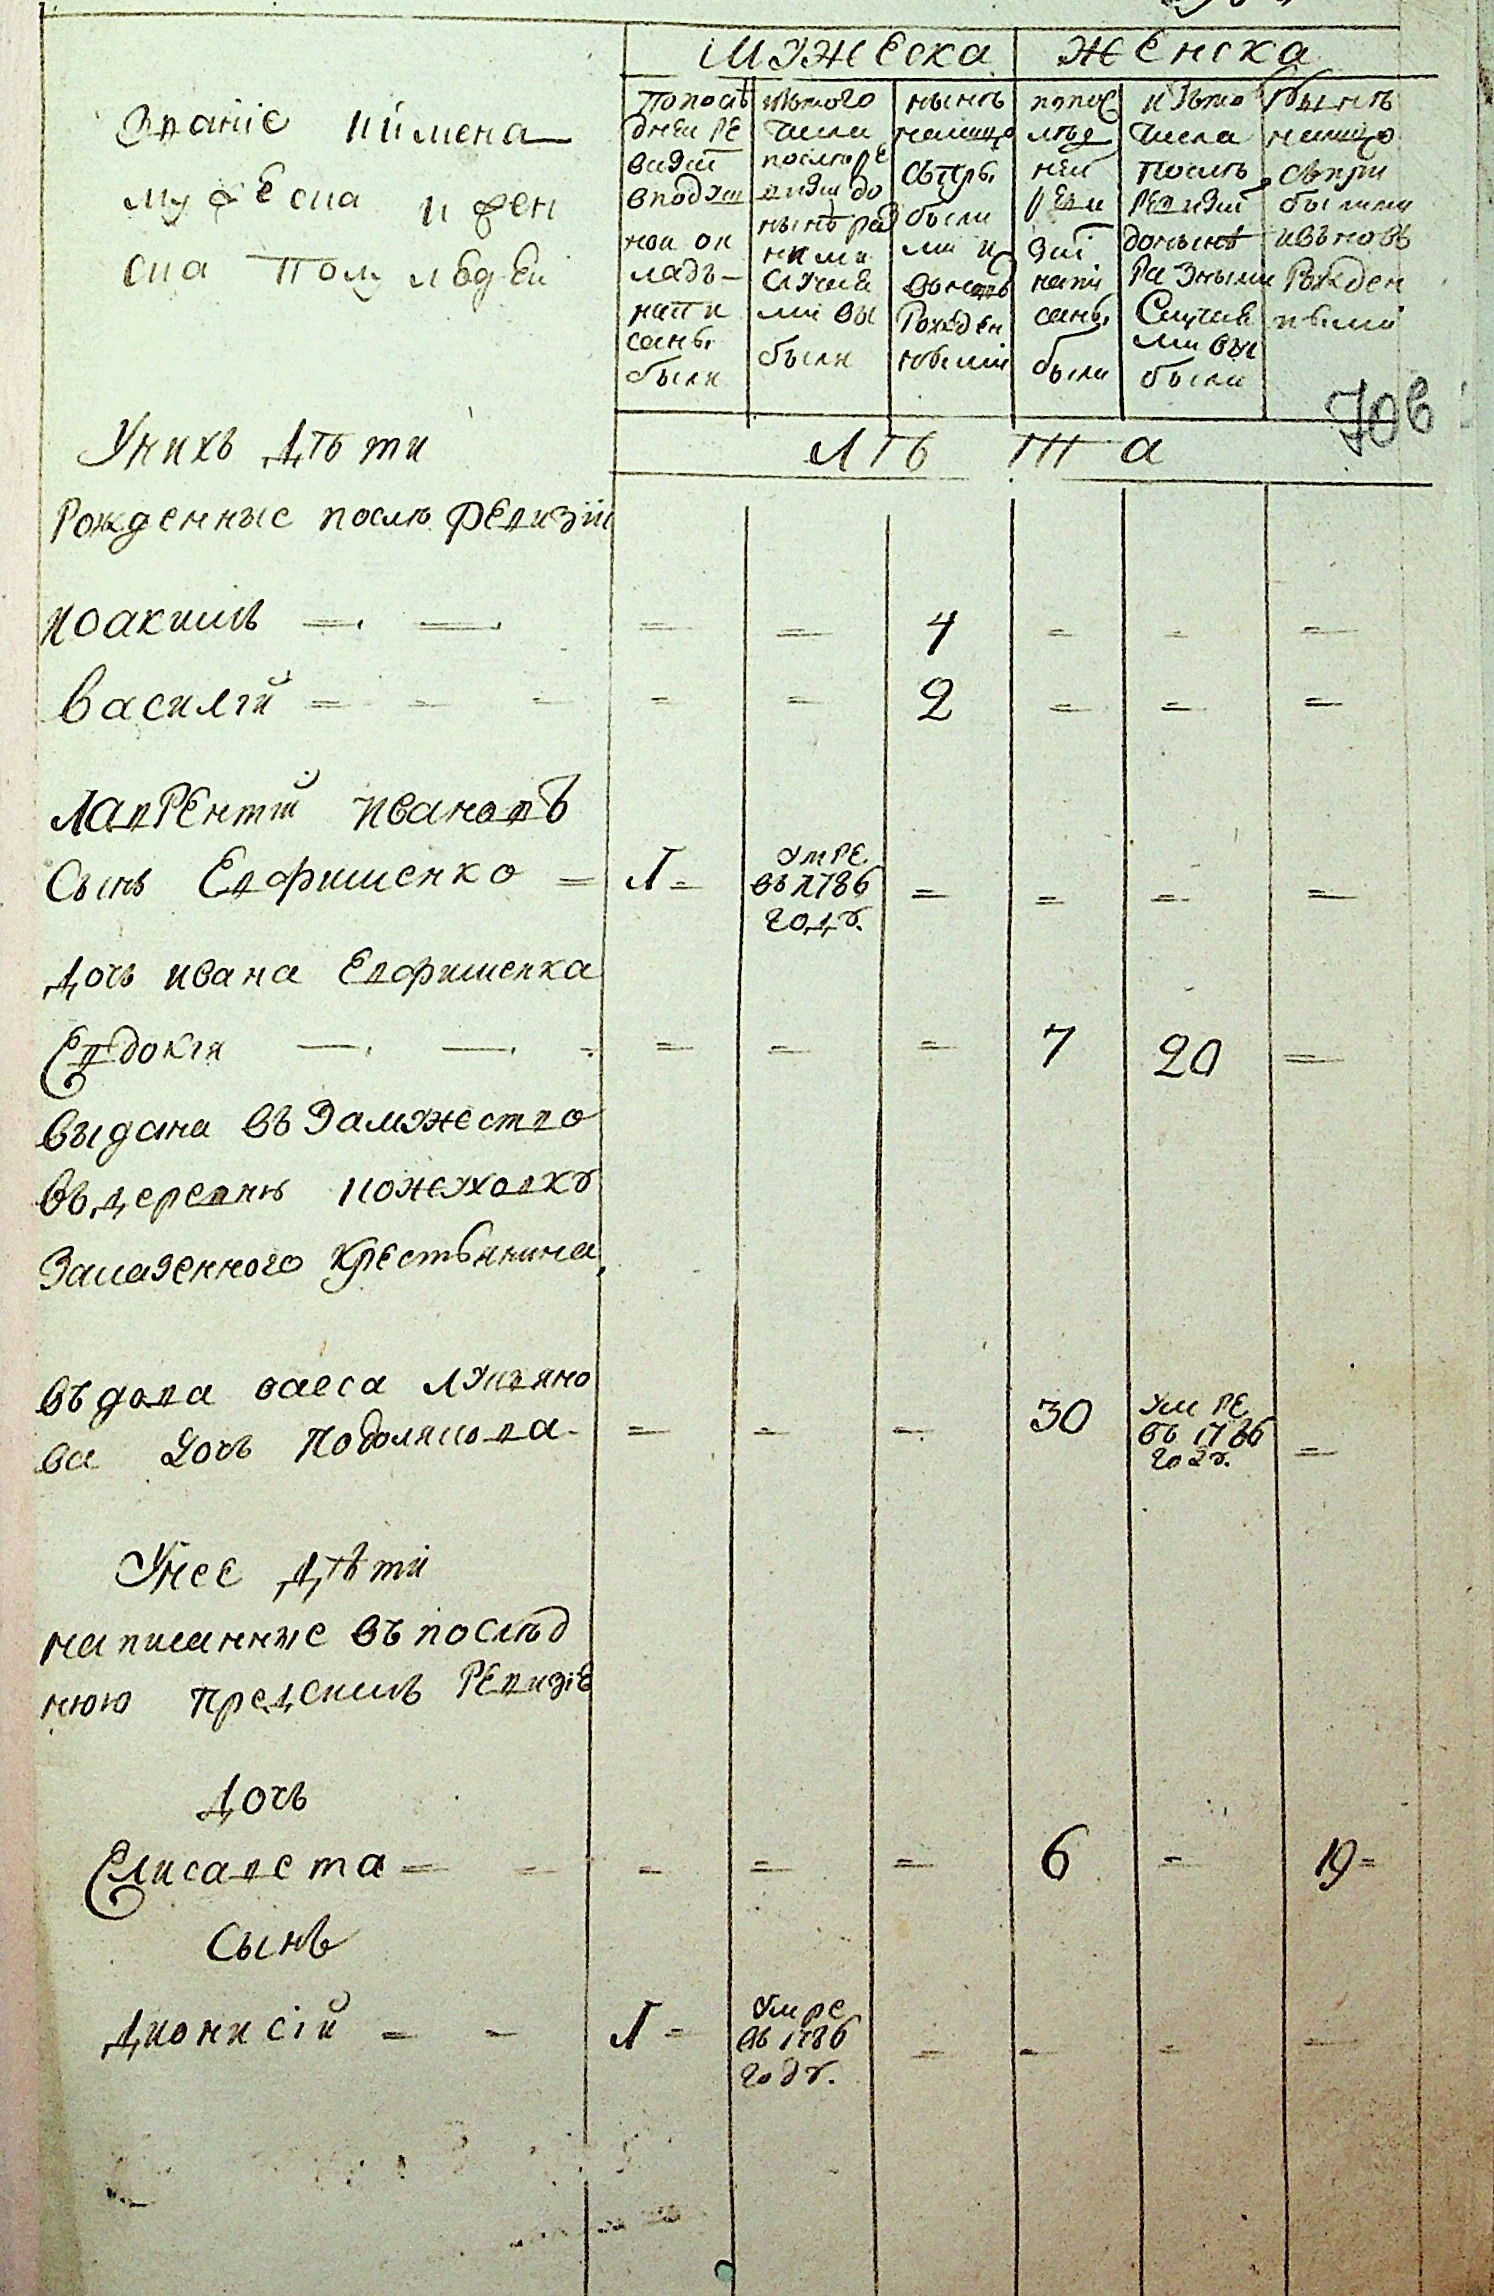 Мужеска Женска
Званіе и имена
мужеска и жен
ска полу людей
По послѣ
дней ре
визіи
в подуш
ном ок
ладѣ
напи
саны
были
изтого
числа
послѣ ре
визіи до
нынѣ раз
ными
случая
ми вы
были
нынѣ
налицо
съ при
были
ми и
вонов
рожден
ными
по пос
лѣд
ней
реви
зіи
напи
саны
были
изъ то
числа
послѣ
ревизіи
до нынѣ
разными
случая
ми вы
были
нынѣ
налицо
съ при
былыми
и вьновь
рожден
ными
лѣта
У нихъ дѣти
рожденные послѣ ревизіи
Иоакимъ 4
Василій 2
Лаврентій Ивановъ
сынъ Евфименко 1 умре
въ 1786
году.
дочь Ивана Евфименка
Евдокія 7 20
выдана въ замужество
въ деревнѣ Кожуховку
за казенного крестьянина
въдова Васса Лукьяно
ва дочь Подолякова 30 умре
въ 1786
году.
У нее дѣти
написанные въ послѣд
нюю пред симъ ревизіе
дочь
Елисавета 6 19
сынъ
Дионисій 1 умре
въ 1786
году.